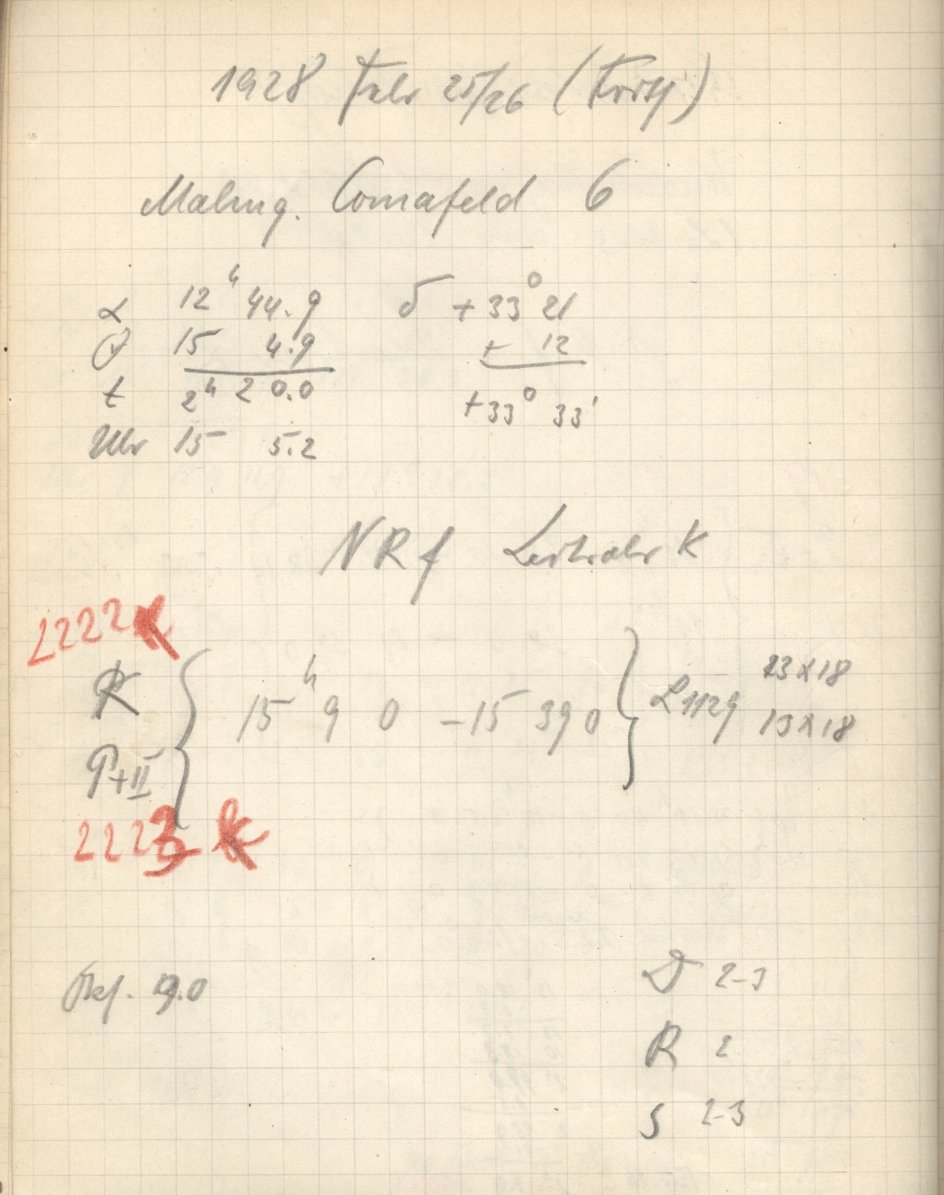 1928 Febr 25/26 (Forts.)
Malmg. Comafeld 6
α 12h 44.9 δ +33° 21
15 4.9 + 12
t 2h 20.0 +33° 33'
Uhr 15 5.2
NRf Leitrohr K
L2222
K
P+II
15h 9 0 -15 39 0
L1129 13x18
13x18
2223
9.0
D 2-3
R 2
S 2-3